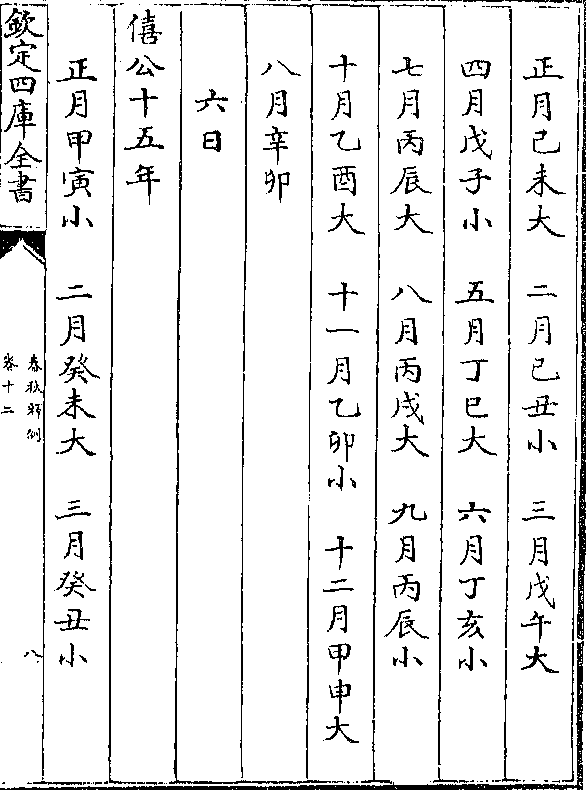 正月己未大　二月己丑小　三月戊午大
四月戊子小　五月丁巳大　六月丁亥小
七月丙辰大　八月丙戌大　九月丙辰小
十月乙酉大　十一月乙卯小　十二月甲申大
八月辛卯
六日
僖公十五年
正月甲寅小　二月癸未大　三月癸丑小
欽定四庫全書
春秋釋例
卷十二
八